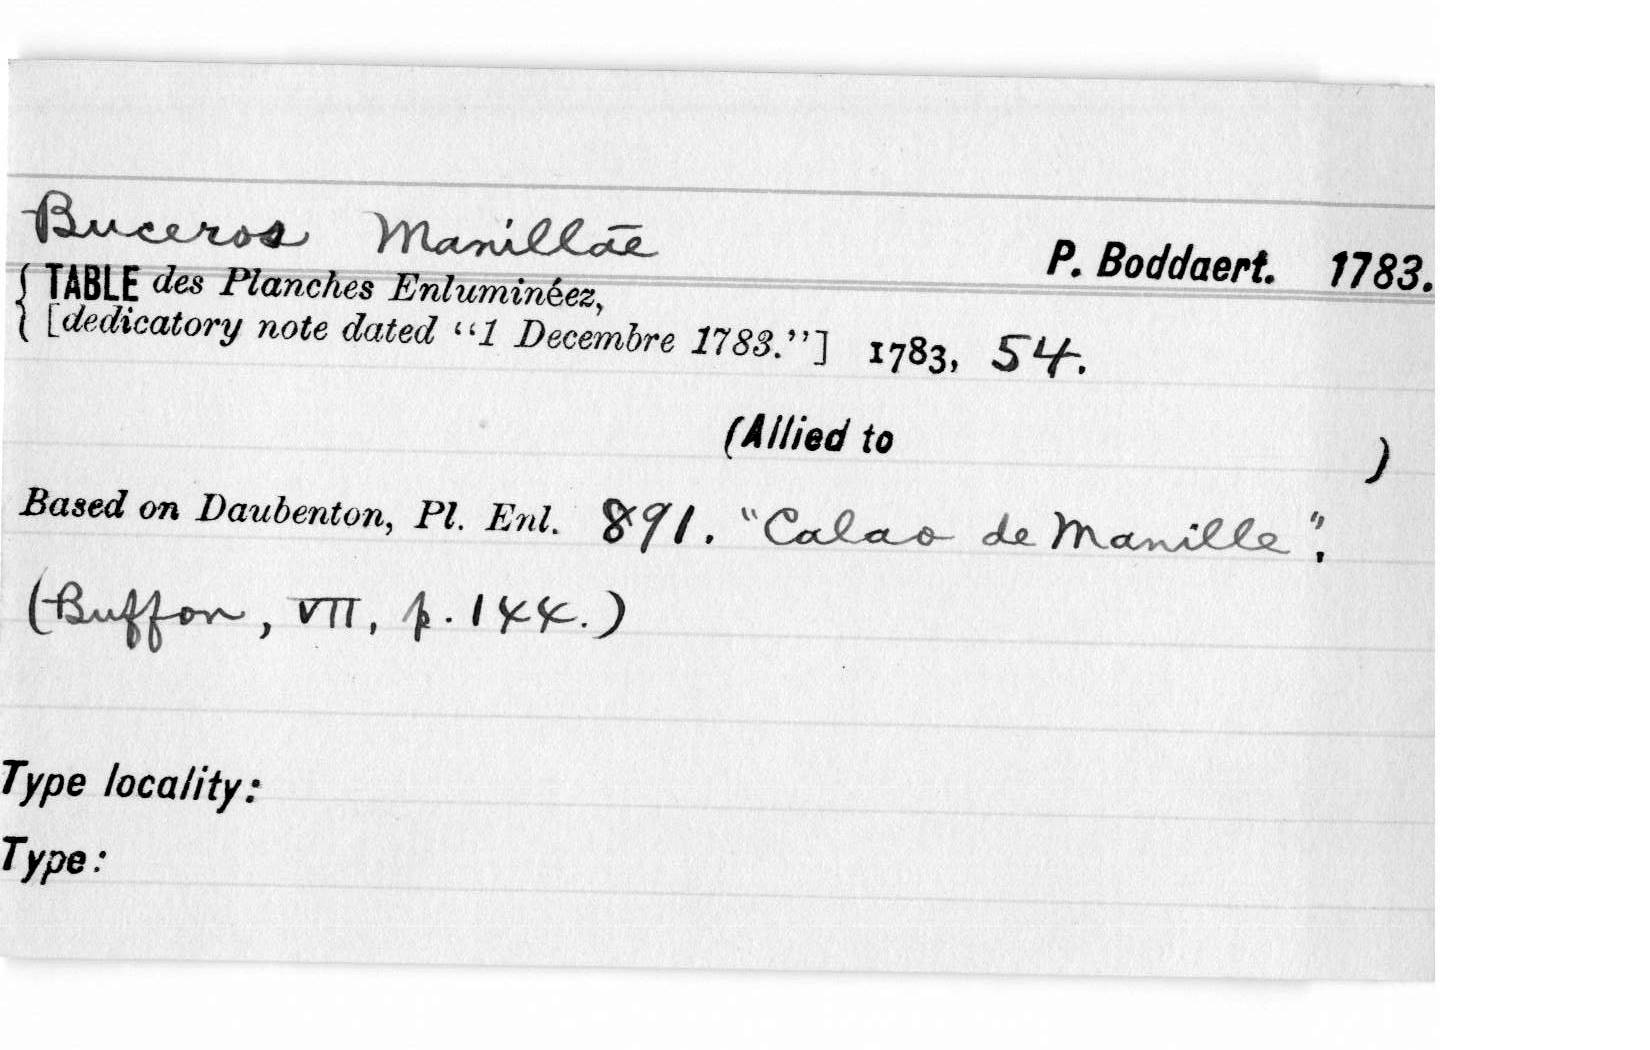 Buceros Manillae
P. Boddaert. 1783.
{ TABLE des Planches Enluminéez,
{ [dedicatory note dated “1 Decembre 1783.”] 1783, 54.
(Allied to )
Based on Daubenton, Pl. Enl. 891. "Calao de Manille".
(Buffon, VII, p. 144.)
Type locality:
Type: